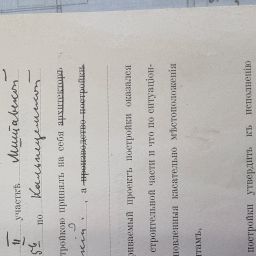 II участкѣ Митавской
56 по Кальнецемской
тройкою принялъ на себя архитекторъ
, а производство постройки
риваемый проектъ постройки оказался
строительной части и что по ситуаціон-
новленныя касательно мѣстоположенія
тимъ,
постройки утвердить къ исполненію